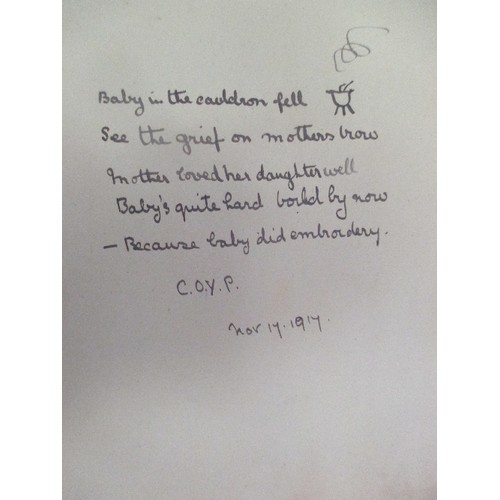 Baby in the cauldron fell
See the grief on mothers brow
Mother loved her daughter well
Baby's quite hard boild by now
— Because baby did embroidery.
C.O.Y.P.
Nov 17. 1917.